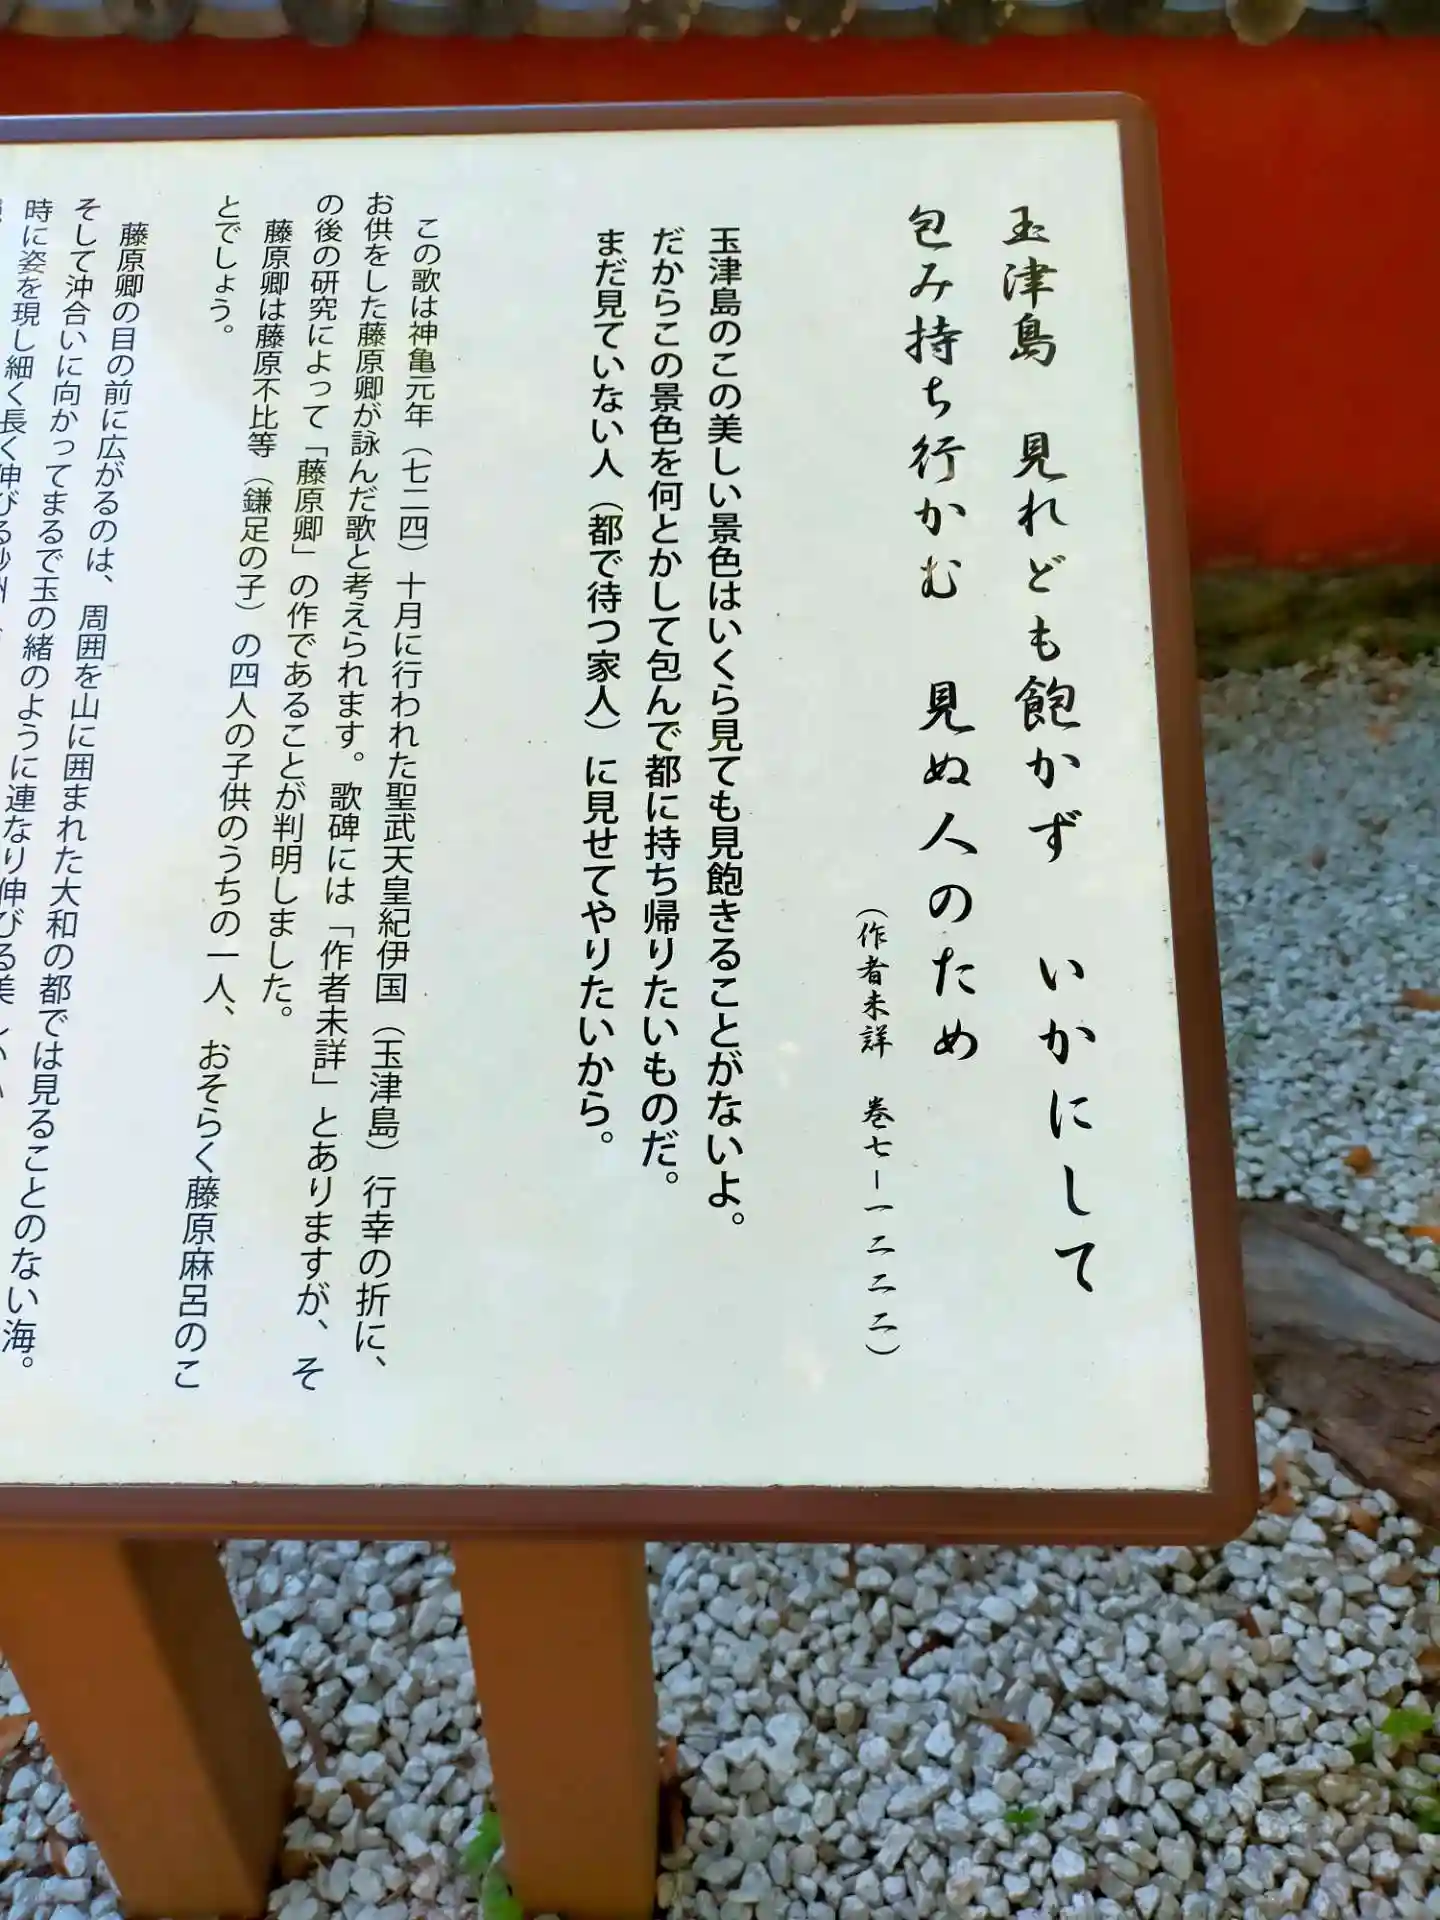 玉津島　見れども飽かず　いかにして
包み持ち行かむ　見ぬ人のため
（作者未詳　巻七－一二二二）
玉津島のこの美しい景色はいくら見ても見飽きることがないよ。
だからこの景色を何とかして包んで都に持ち帰りたいものだ。
まだ見ていない人（都で待つ家人）に見せてやりたいから。
この歌は神亀元年（七二四）十月に行われた聖武天皇紀伊国（玉津島）行幸の折に、
お供をした藤原卿が詠んだ歌と考えられます。歌碑には「作者未詳」とありますが、そ
の後の研究によって「藤原卿」の作であることが判明しました。
藤原卿は藤原不比等（鎌足の子）の四人の子供のうちの一人、おそらく藤原麻呂のこ
とでしょう。
藤原卿の目の前に広がるのは、周囲を山に囲まれた大和の都では見ることのない海。
そして沖合いに向かってまるで玉の緒のように連なり伸びる美しい
時に姿を現し細く長く伸びる砂州